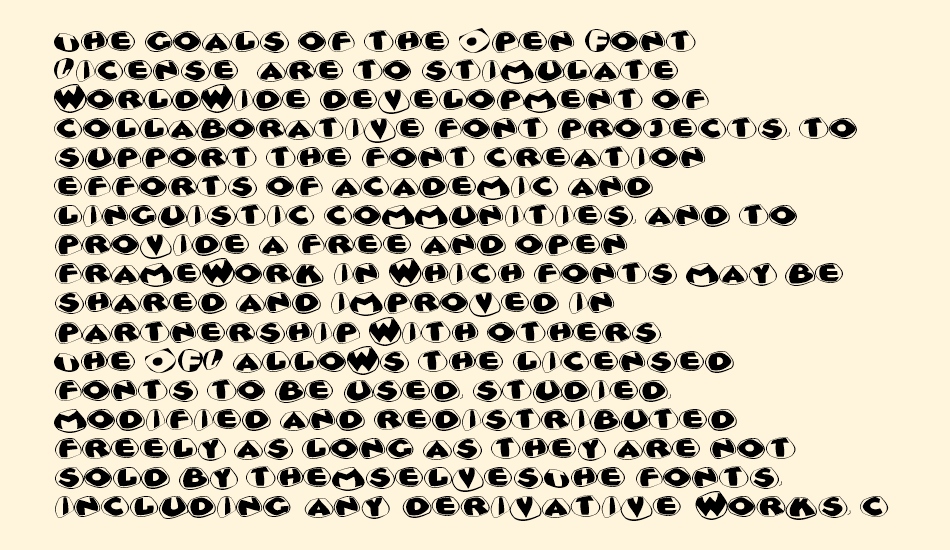 The goals of the Open Font
License are to stimulate
worldwide development of
collaborative font projects, to
support the font creation
efforts of academic and
linguistic communities, and to
provide a free and open
framework in which fonts may be
shared and improved in
partnership with others
The OFL allows the licensed
fonts to be used, studied,
modified and redistributed
freely as long as they are not
sold by themselves.The fonts,
including any derivative works, c